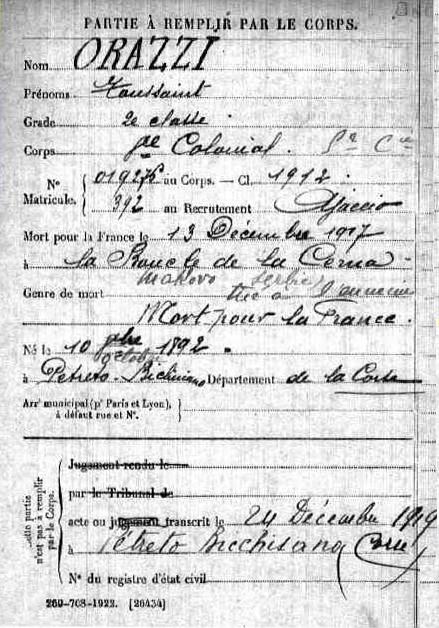 PARTIE À REMPLIR PAR LE CORPS.
Nom ORAZZI
Prénoms Toussaint
Grade 2e classe
Corps Colonial. Cie
N° 019275 au Corps. — Cl. 1912.
Matricule. 392 au Recrutement Ajaccio
Mort pour la France le 13 Décembre 1917
à la Boucle de la Cerna
Makovo Serbie
Genre de mort tué à l'ennemi
Mort pour la France.
Né le 10 8bre 1892
octobre
à Petreto-Bicchisano Département de la Corse
Arrt municipal (pr Paris et Lyon),
à défaut rue et N°.
Cette partie
n'est pas à remplir
par le Corps.
Jugement rendu le
par le Tribunal de
acte ou jugement transcrit le 24 Décembre 1919
à Pétreto Bicchisano (Corse)
N° du registre d'état civil
269-708-1922. [26434]